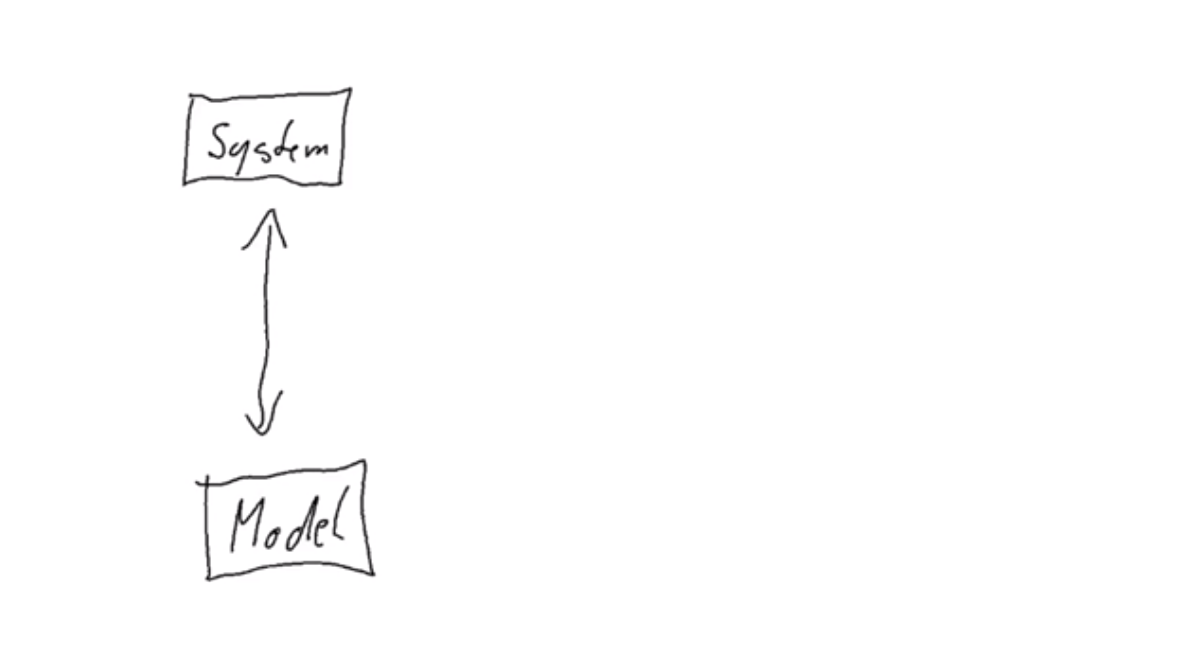 System
Model